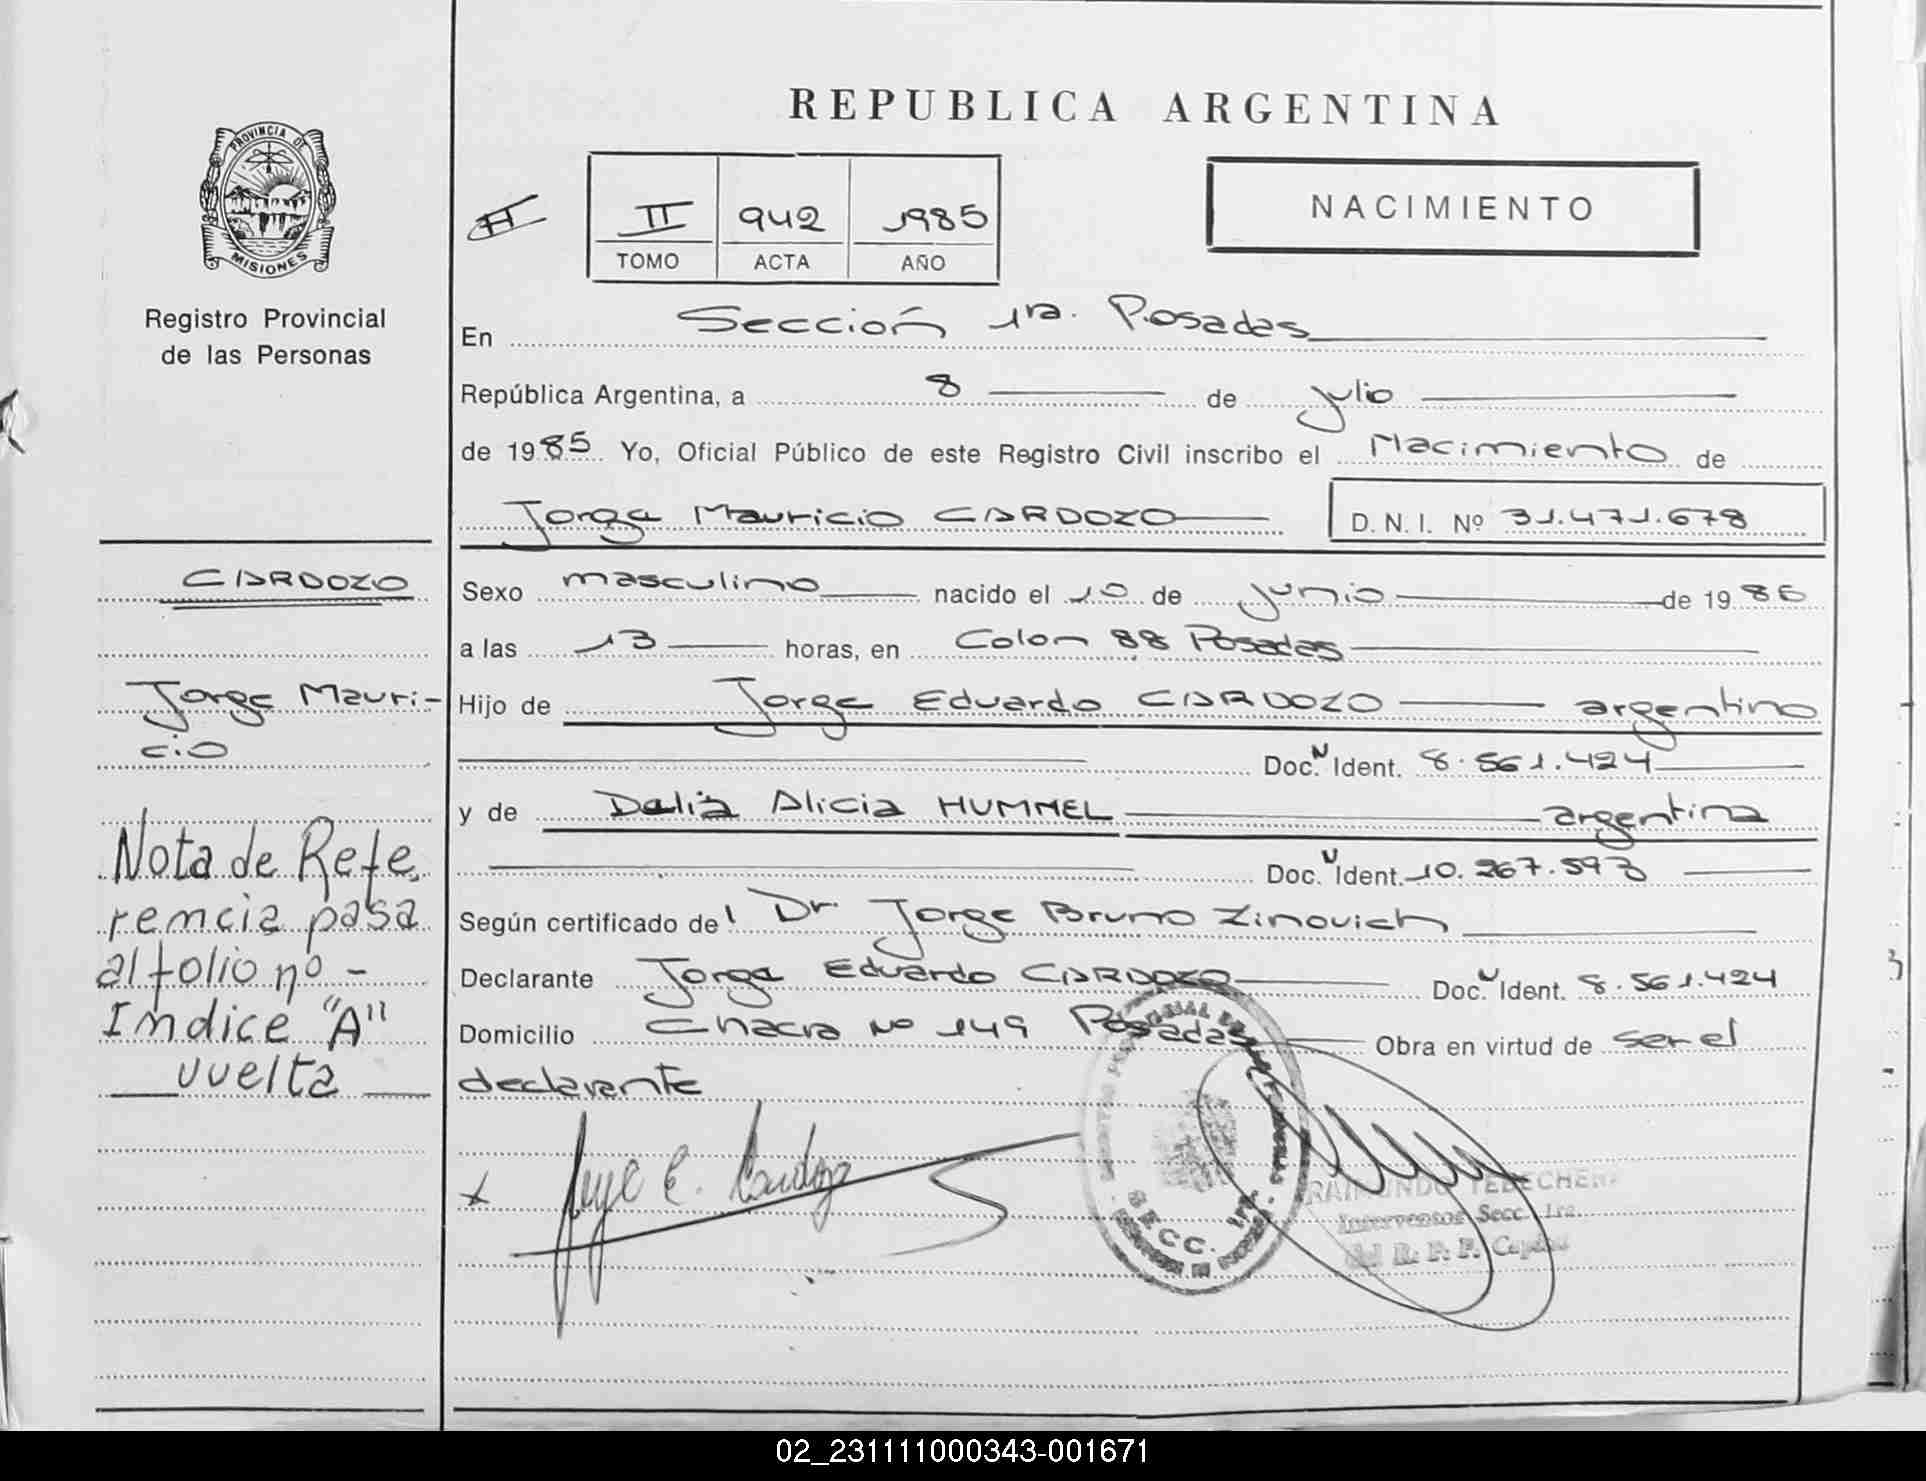 REPUBLICA ARGENTINA
PROVINCIA DE
MISIONES
Registro Provincial
de las Personas
II
II 942 1985
TOMO ACTA AÑO
NACIMIENTO
En Sección 1ra. Posadas
República Argentina, a 8 de julio
de 1985 Yo, Oficial Público de este Registro Civil inscribo el Nacimiento de
Jorge Mauricio CARDOZO D.N.I. Nº 31.471.678
Sexo masculino nacido el 10 de junio de 19
a las 13 horas, en Colon 88 Posadas
Hijo de Jorge Eduardo CARDOZO argentino
Doc. N Ident. 8.561.424
y de Dalia Alicia HUMMEL argentina
Doc. N Ident. 10.267.593
Según certificado del Dr. Jorge Bruno Zinovich
Declarante Jorge Eduardo CARDOZO Doc. N Ident. 8.561.424
Domicilio Chacra Nº 149 Posadas Obra en virtud de ser el
declarante
x Jorge E. Cardozo
SECC. 1ra.
RAIMUNDO
Interventor Secc. 1ra.
del R. P. P. Capital
CARDOZO
Jorge Mauri-
cio
Nota de Refe
rencia pasa
al folio nº -
Indice "A"
vuelta
02_231111000343-001671